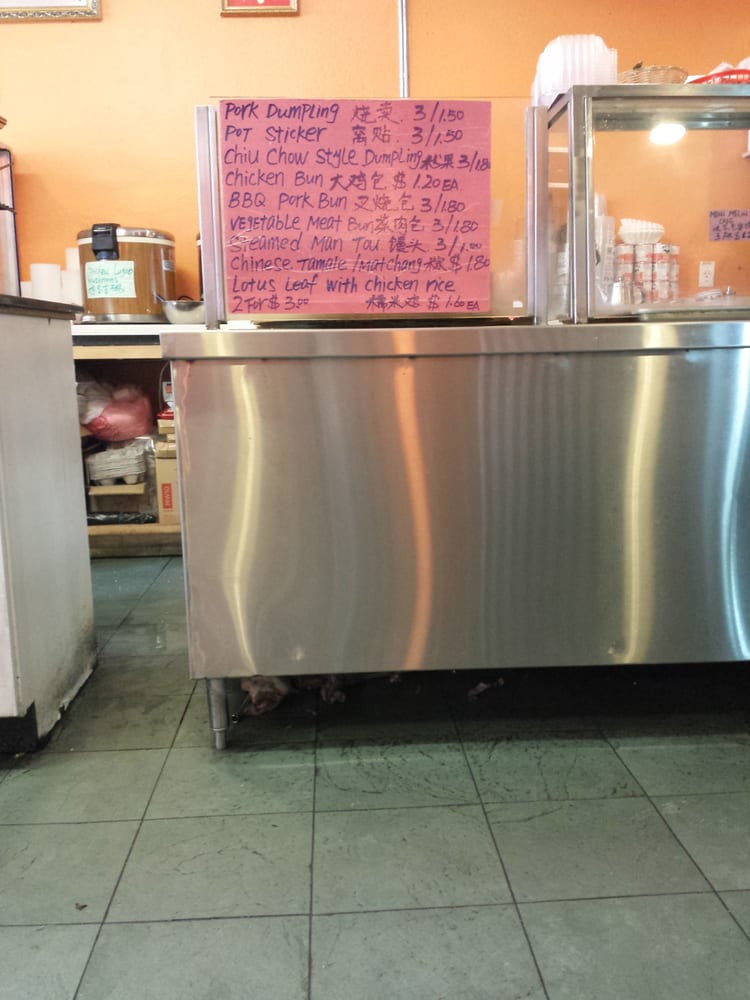 Pork Dumpling 烧卖. 3/1.50
Pot Sticker 窝贴. 3/1.50
Chiu Chow Style Dumpling 粉果 3/1.80
Chicken Bun 大鸡包 $1.20 EA
BBQ Pork Bun 叉烧包 3/1.80
Vegetable Meat Bun 菜肉包 3/1.80
Steamed Man Tau 馒头 3/1.00
Chinese Tamale /Mat Chang 粽 $1.80
Lotus Leaf with chicken rice
2 For $3.00 糯米鸡 $1.60 EA
Mini Melon
Cake